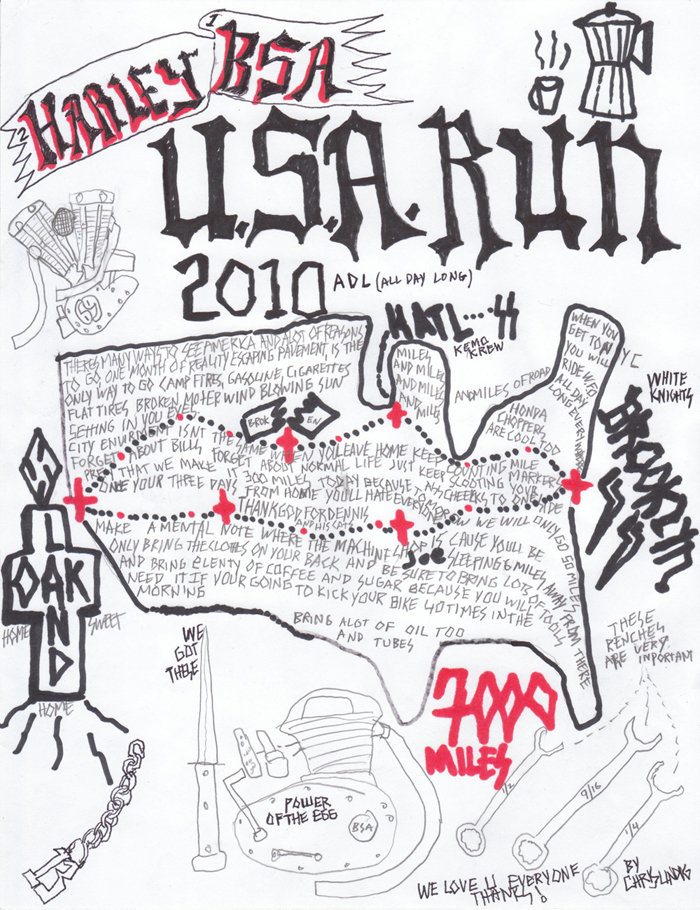 1
HARLEY BSA
2
U.S.A. RUN
2010 ADL (ALL DAY LONG)
HATL····SS
KEMO
KREW
THERES MANY WAYS TO SEE AMERICA AND ALOT OF REASONS
TO GO ONE MONTH OF REALITY ESCAPING PAVEMENT, IS THE
ONLY WAY TO GO CAMP FIRES, GASOLINE, CIGARETTES
FLAT TIRES, BROKEN MOTER WIND BLOWING SUN
SETTING IN YOU EYES
CITY ENVIRONMENT ISNT THE SAME WHEN YOU LEAVE HOME KEEP
FORGET ABOUT BILLS, FORGET ABOUT NORMAL LIFE JUST KEEP
THAT WE MAKE IT 300 MILES TODAY BECAUSE
ONCE YOUR THREE DAYS FROM HOME YOULL HATE EVERYONE
THANK GOD FOR DENNIS
AND HIS CATS
BROK EN
MILES
AND MILES
AND MILES
AND MILES
AND MILES OF ROAD
HONDA
CHOPPERS
ARE COOL TOO
COUNTING MILE
MARKERS
ASS CHEEKS TO YOUR
SIDE
WHEN YOU
GET TO NYC
YOU WILL
RIDE W/FO
ALL DAY
LONG EVERYWHERE
WHITE
KNIGHTS
BROOKLYN
SS
MAKE A MENTAL NOTE WHERE THE MACHINE SHOP IS CAUSE YOULL BE
ONLY BRING THE CLOTHES ON YOUR BACK AND BE SURE TO BRING LOTS OF TOOLS
AND BRING PLENTY OF COFFEE AND SUGAR BECAUSE YOU WILL
NEED IT IF YOUR GOING TO KICK YOUR BIKE 40 TIMES IN THE
MORNING
JOE
NOW WE WILL ONLY GO 50 MILES
SLEEPING 6 MILES AWAY FROM THERE
BRING ALOT OF OIL TOO
AND TUBES
OAKLAND
HOME
SWEET
HOME
WE
GOT
THESE
7000
MILES
THESE
RENCHES
ARE VERY
INPORTANT
1/2
9/16
1/4
POWER
OF THE EGG
BSA
WE LOVE U EVERYONE
THANKS!
BY